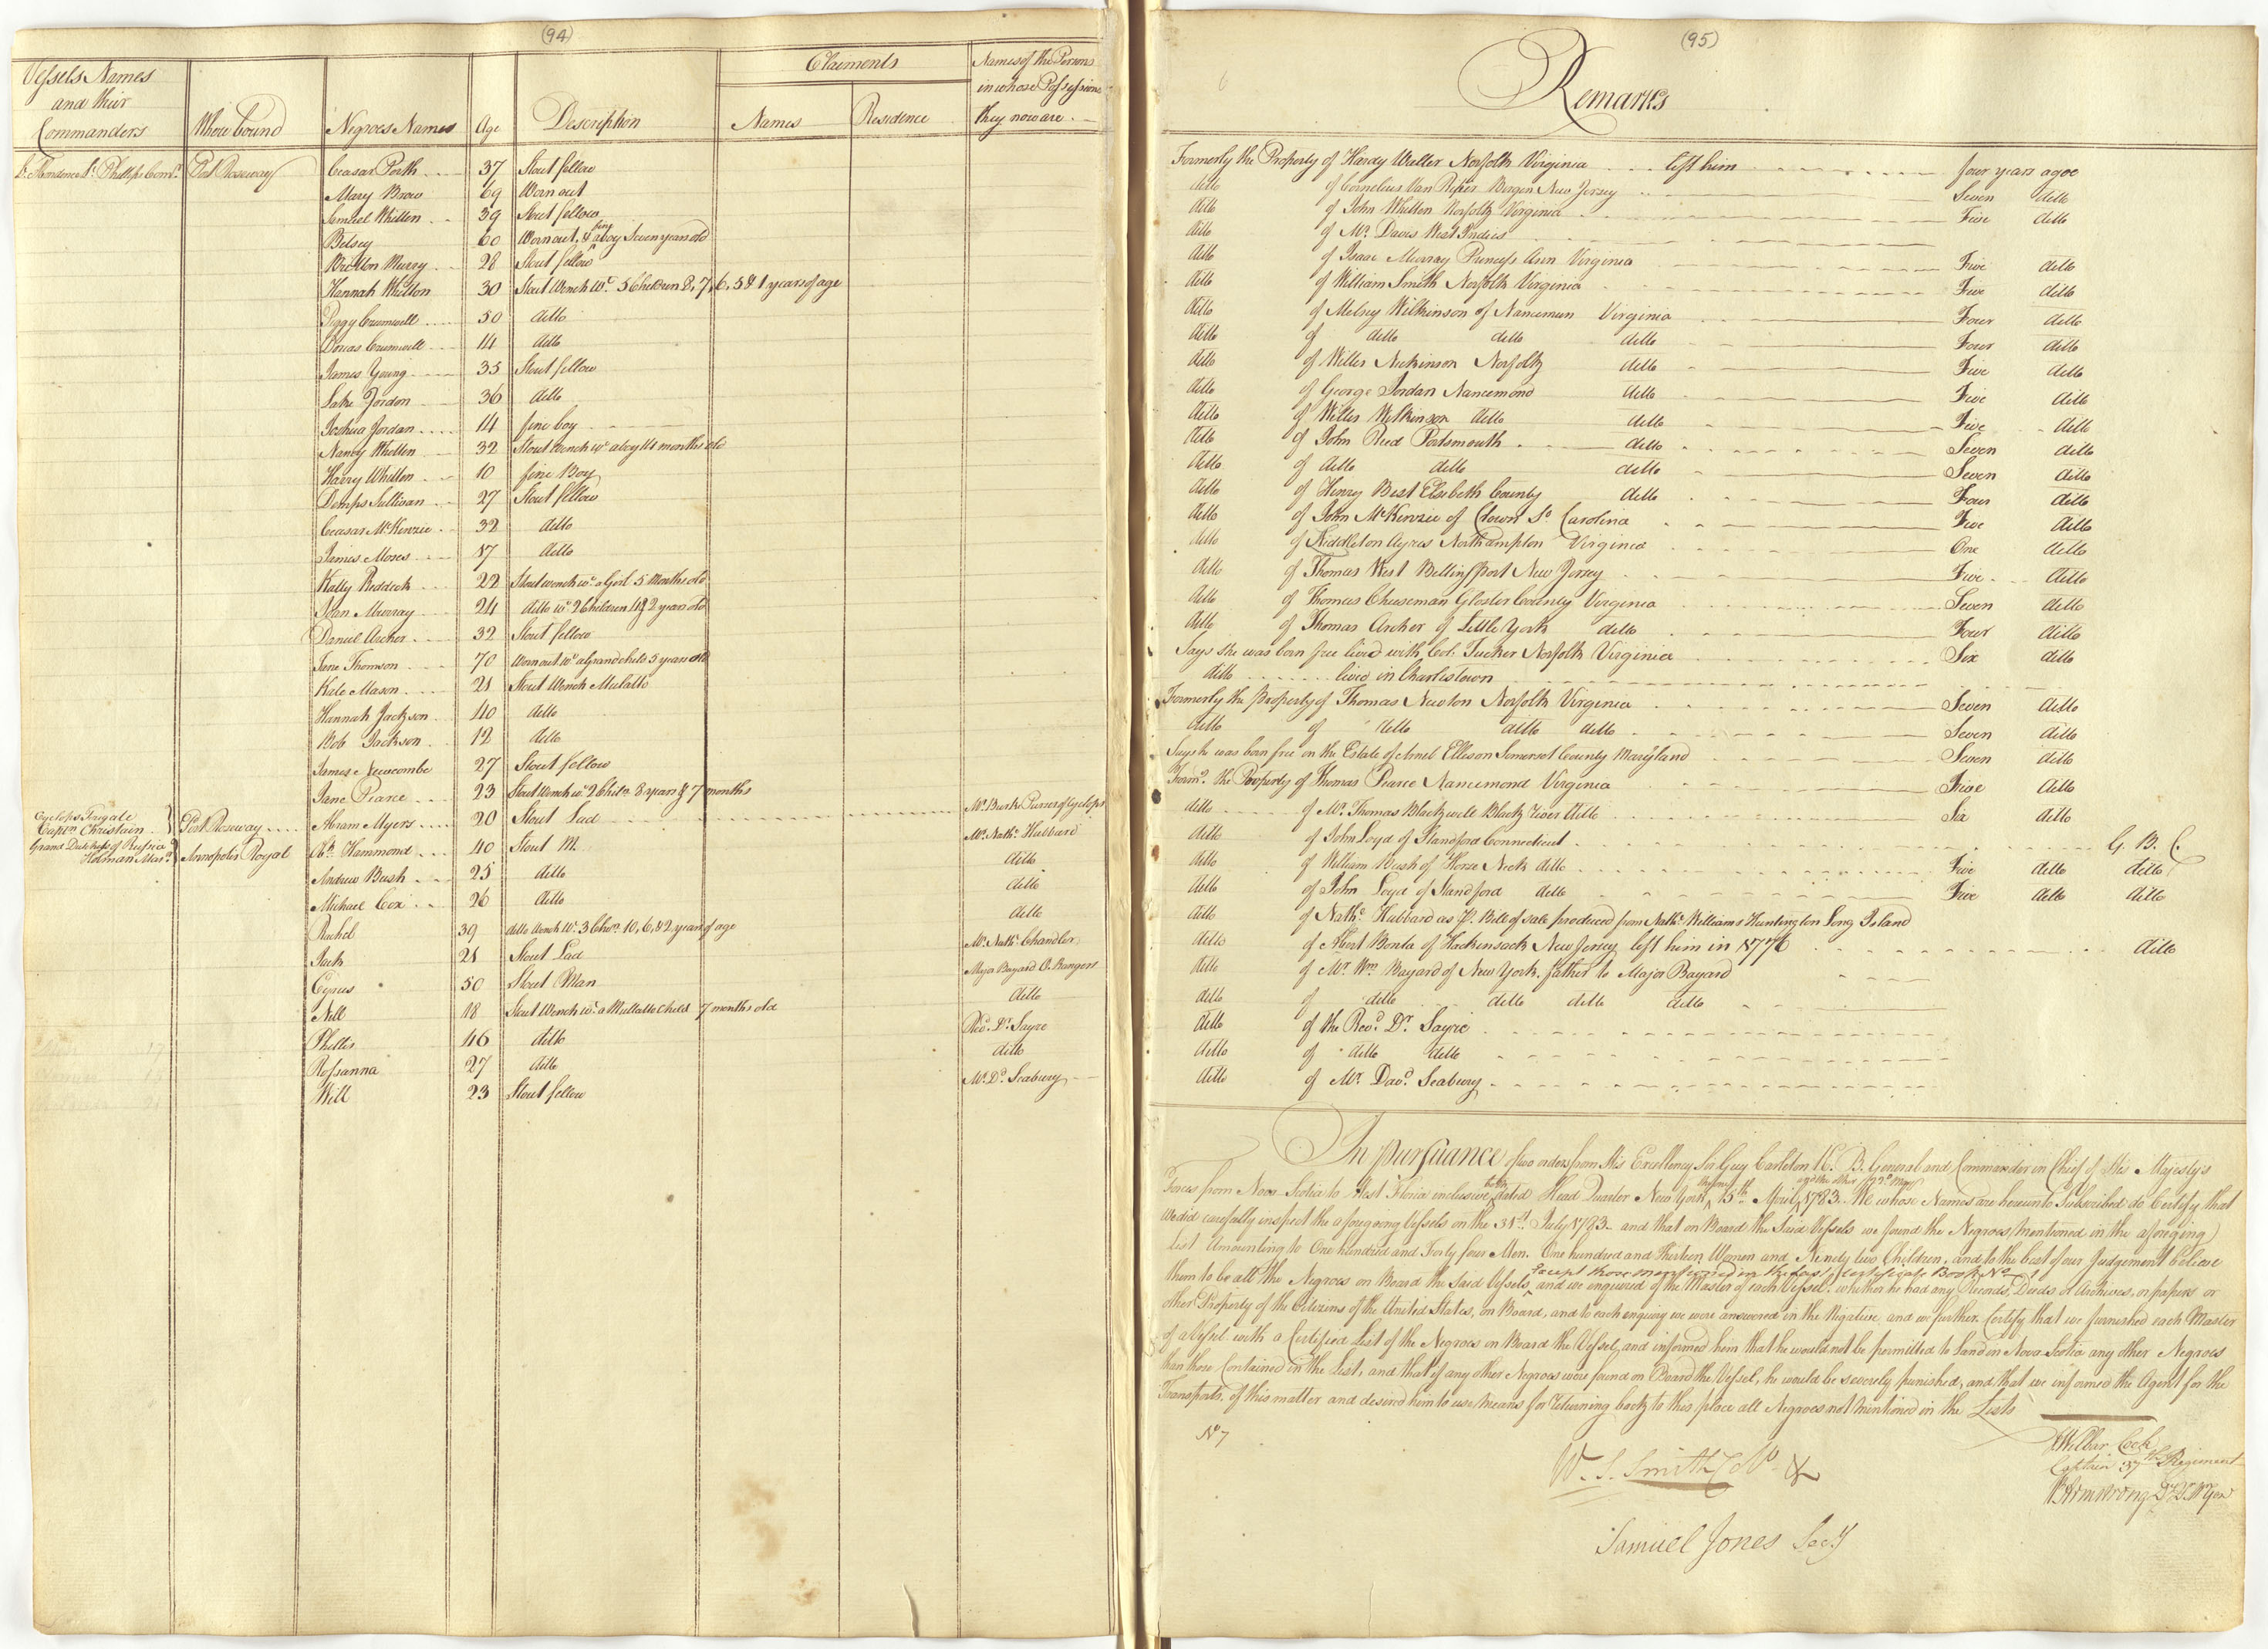 (94)
Vessels Names and their Commanders
Where bound
Negroes Names
Age
Description
Claiments
Names
Residence
Names of the Persons in whose Possession they now are
L'Abondance Lt. Phillips Comr. Port Roseway Ceasar Perth 37 Stout fellow
Mary Brow 69 Worn out
Samuel Whitten 39 Stout fellow
Betsey 60 Worn out, & a fine boy Seven years old
Britton Murry 28 Stout fellow
Hannah Whitton 30 Stout Wench wt. 5 Children 8, 7, 6, 5 & 1 years of age
Peggy Crumwell 50 ditto
Dorcas Crumwell 14 ditto
James Young 35 Stout fellow
Jordon 36 ditto
Joshua Jordan 14 fine boy
Nancy Whitten 32 Stout Wench wt. a boy 14 months old
Harry Whitton 10 fine Boy
Demps Sullivan 27 Stout fellow
Ceasar McKenzie 32 ditto
James Moses 17 ditto
Kelly Reddick 22 Stout wench wt. a Girl 5 Months old
Joan Murray 24 ditto wt. 2 Children 4 & 2 years old
Daniel Archer 32 Stout fellow
Jane Thomson 70 Worn out wt. a Grand child 5 years old
Kate Mason 21 Stout Wench Mulatto
Hannah Jackson 40 ditto
Bob Jackson 12 ditto
James Newcombe 27 Stout fellow
Jane Pearce 23 Stout Wench wt. 2 Childn. 8 years & 7 months
Cyclops Frigate Captn. Christain Port Roseway Abram Myers 20 Stout Lad Mr. Burk Purser of Cyclops
Grand Dutchess of Russia Holman Mastr. Annopolis Royal Abm. Hammond 40 Stout M. Mr. Nathl. Hubbard
Andrew Bush 25 ditto ditto
Michael Cox 26 ditto ditto
Rachel 39 ditto Wench wt. 3 Chn. 10, 6, & 2 years of age ditto
Jack 21 Stout Lad Mr. Nathl. Chandler
Cyrus 50 Stout Man Major Bayard O. Rangers
Nell 18 Stout Wench wt. a Mullatto Child 7 months old ditto
Phillis 46 ditto Revd. Dr. Sayre
Rossanna 27 ditto ditto
Will 23 Stout fellow Mr. Dd. Seabury
(95)
Remarks
Formerly the Property of Hardy Weller Norfolk Virginia left him four years agoe
ditto of Cornelius Van Riper Bergen New Jersey Seven ditto
ditto of John Whitton Norfolk Virginia Five ditto
ditto of Mr. Davis West Indies
ditto of Isaac Murray Princess Ann Virginia Five ditto
ditto of William Smith Norfolk Virginia Five ditto
ditto of Melsey Wilkinson of Nancemun Virginia Four ditto
ditto of ditto ditto ditto Four ditto
ditto of Willis Norfolk ditto Five ditto
ditto of George Jordan Nancemond ditto Five ditto
ditto of Willis Wilkinson ditto ditto Five ditto
ditto of John Reed Portsmouth ditto Seven ditto
ditto of ditto ditto ditto Seven ditto
ditto of Henry Best Elsebeth County ditto Four ditto
ditto of John McKenzie of Ctown So. Carolina Five ditto
ditto of Middleton Ayres Northampton Virginia One ditto
ditto of Thomas West Billingsport New Jersey Five ditto
ditto of Thomas Cheeseman Gloster County Virginia Seven ditto
ditto of Thomas Archer of Little York ditto Four ditto
Says she was born free lived with Col. Tucker Norfolk Virginia Six ditto
ditto lived in Charlestown
Formerly the Property of Thomas Newton Norfolk Virginia Seven ditto
ditto of ditto ditto ditto Seven ditto
Says he was born free on the Estate of Arnel Ellison Somersot County Maryland Seven ditto
Formy. the Property of Thomas Pearce Nancimond Virginia Five ditto
ditto of Mr. Thomas Blackwell Black River ditto Six ditto
ditto of John Loyd of Standford Connecticut G. B. C.
ditto of William Bush of Horse Neck ditto Five ditto ditto
ditto of John Loyd of Standford ditto Five ditto ditto
ditto of Nathl. Hubbard as Pr. Bill of sale produced from Nathl. Williams Huntington Long Island
ditto of Albert Bonta of Hackensack New Jersey left him in 1776 ditto
ditto of Mr. Wm. Bayard of New York father to Major Bayard
ditto of ditto ditto ditto ditto
ditto of the Revd. Dr. Sayre
ditto of ditto ditto
ditto of Mr. Davd. Seabury
In pursuance of two orders from His Excellency Sir Guy Carleton K. B. General and Commander in Chief of His Majesty's
Forces from Nova Scotia to West Floria inclusive both dated Head Quarter New York the one 15th. April and the other 22d. May 1783. We whose Names are hereunto Subscribed do Certify that
we did carefully inspect the aforegoing Vessels on the 31st. July 1783 and that on Board the Said Vessels we found the Negroes mentioned in the aforegoing
List Amounting to One hundred and Forty four Men. One hundred and Thirteen Women and Ninety two Children, and to the best of our Judgement believe
them to be all the Negroes on Board the Said Vessels, Except those mentioned in the last certificate Book No. 1 and we enquired of the Master of each Vessel, whether he had any Records, Deeds or Archives, or papers or
other Property of the Citizens of the United States, on Board, and to each enquiry we were answered in the Negative, and we further Certify that we furnished each Master
of a Vessel with a Certified List of the Negroes on Board the Vessel, and informed him that he would not be permitted to Land in Nova Scotia any other Negroes
than those Contained in the List, and that if any other Negroes were found on Board the Vessel, he would be severely punished, and that we informed the Agent for the
Transports, of this matter and desired him to use Means for returning back to this place all Negroes not Mentioned in the Lists
No 7
W. S. Smith Col &
Samuel Jones Secy
Wilbar Cook
Captain 37th Regiment
Armstrong D. Q. M. Gen